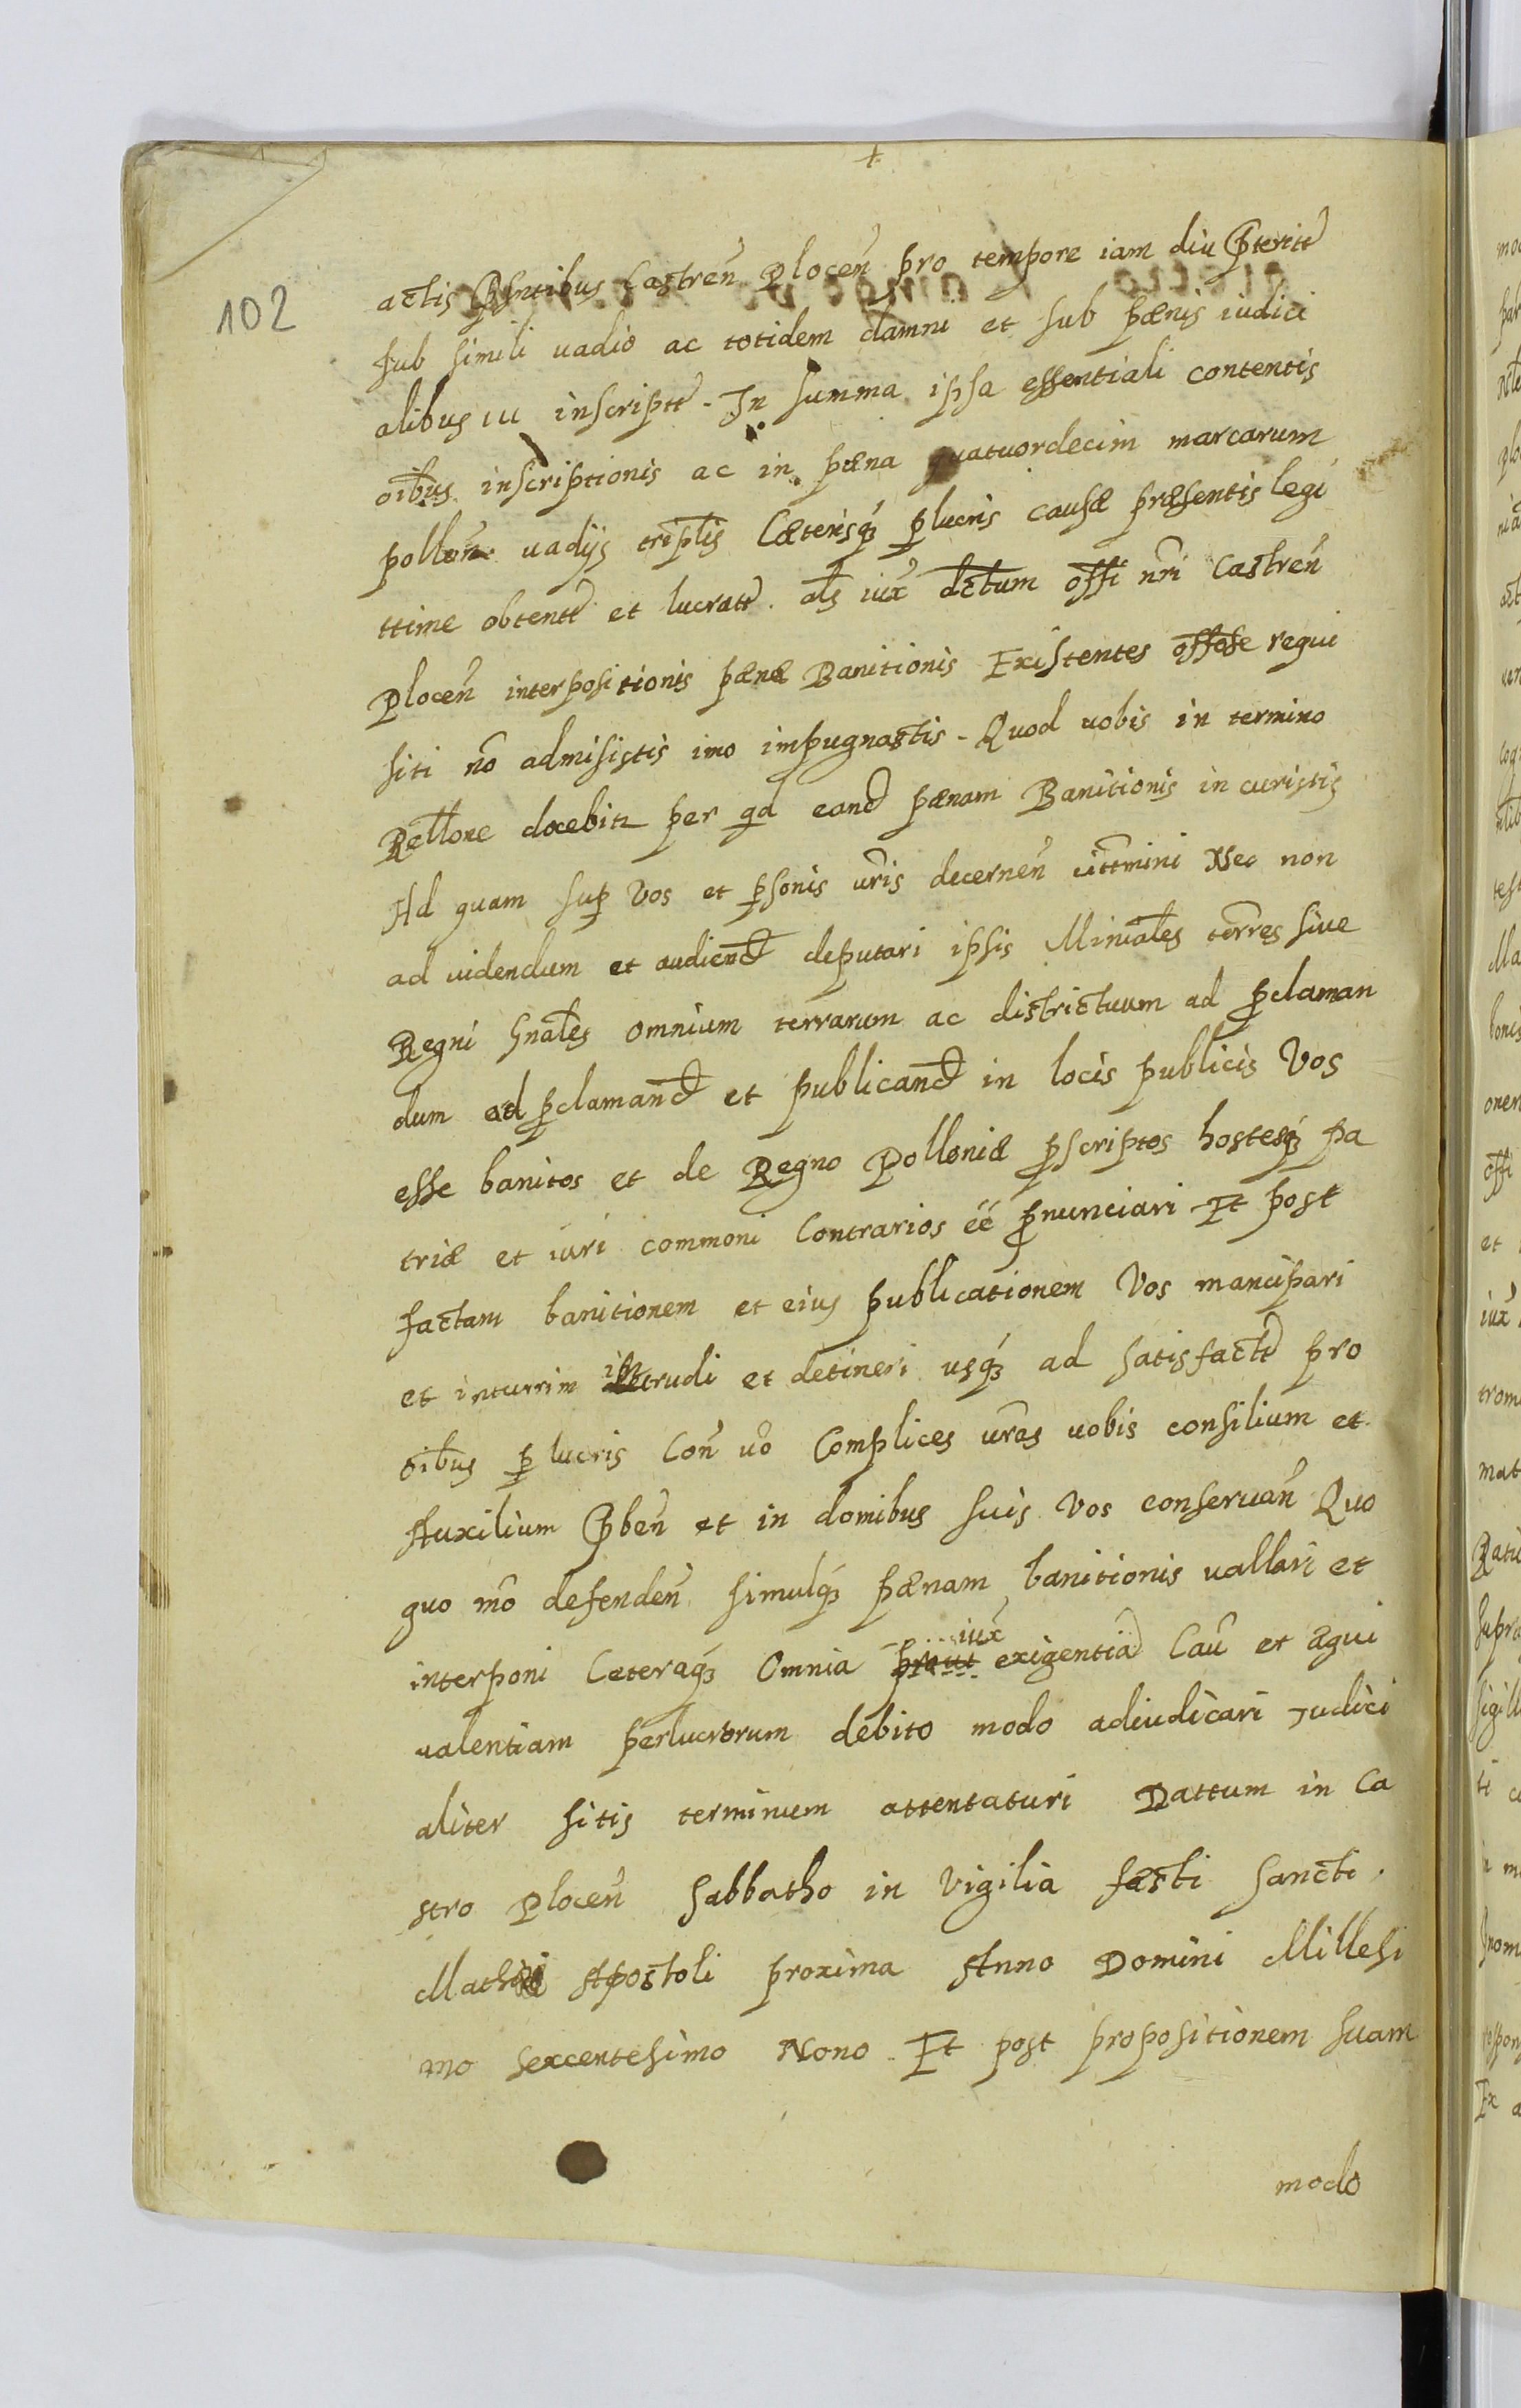 102
actis Pꝛsntibus Castren̄ Plocen̄ pro tempore iam diu pterite
sub simili vadio ac totidem damni et sub pænis iudici
alibus in inscripte. In summa ipsa essentiali contentis
oibus inscriptionis ac in pæna quatuordecim marcarum
pollon vadijs triplis Cæterisq₃ ꝑlucris causæ præsentis legi
ttime obtente et lucrate. als iux dctum offi nri Castren̄
Plocen̄ interpositionis pænæ Banitionis Existentes offose requi
siti no admisistis imo impugnastis. Quod vobis in termino
Rellone docebitr per qd eand pænam Banitionis in curistis
Ad quam sup Vos et psonis vris decernen̄ cittmini Nec non
ad videndum et audiend deputari ipsis Minirales terres sive
Regni Gnales omnium terrarum ac districtuum ad pclaman
dum ad pclamand et publicand in locis publicis Vos
esse banitos et de Regno Polloniæ pscriptos hostesq₃ pa
triæ et iuri commoni Contrarios ēē pnunciari Et post
factam banitionem et eius publicationem Vos mancipari
et inturrim intrudi et detineri usq₃ ad satisfacte pro
oibus ꝑ lucris Con vo Complices vras vobis consilium et
Auxilium pben̄ et in domibus suis Vos conservan̄ Quo
quo mo defenden̄ simulq₃ pænam banitionis vallari et
interponi Ceteraq₃ Omnia prout iux exigentia Cau et æqui
valentiam perlucrorum debito modo adiudicari Judici
aliter sitis terminum attentaturi Dattum in Ca
stro Plocen̄ Sabbatho in Vigilia fæsti Sancti
Mathei Apostoli proxima Anno Domini Millesi
mo sexcentesimo Nono. Et post propositionem suam
modo